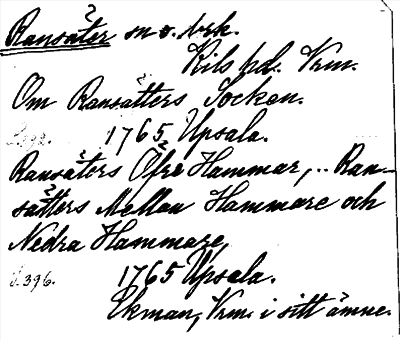 Ransäter sn o. brk.
Kils hd. Vrm.
Om Ransätters Socken.
S. 392. 1765, Upsala.
Ransäters Öfre Hammar, .. Ran-
sätters Mellan Hammare och
Nedra Hammare,
S. 396. 1765 Upsala.
Ekman, Vrm. i sitt ämne.